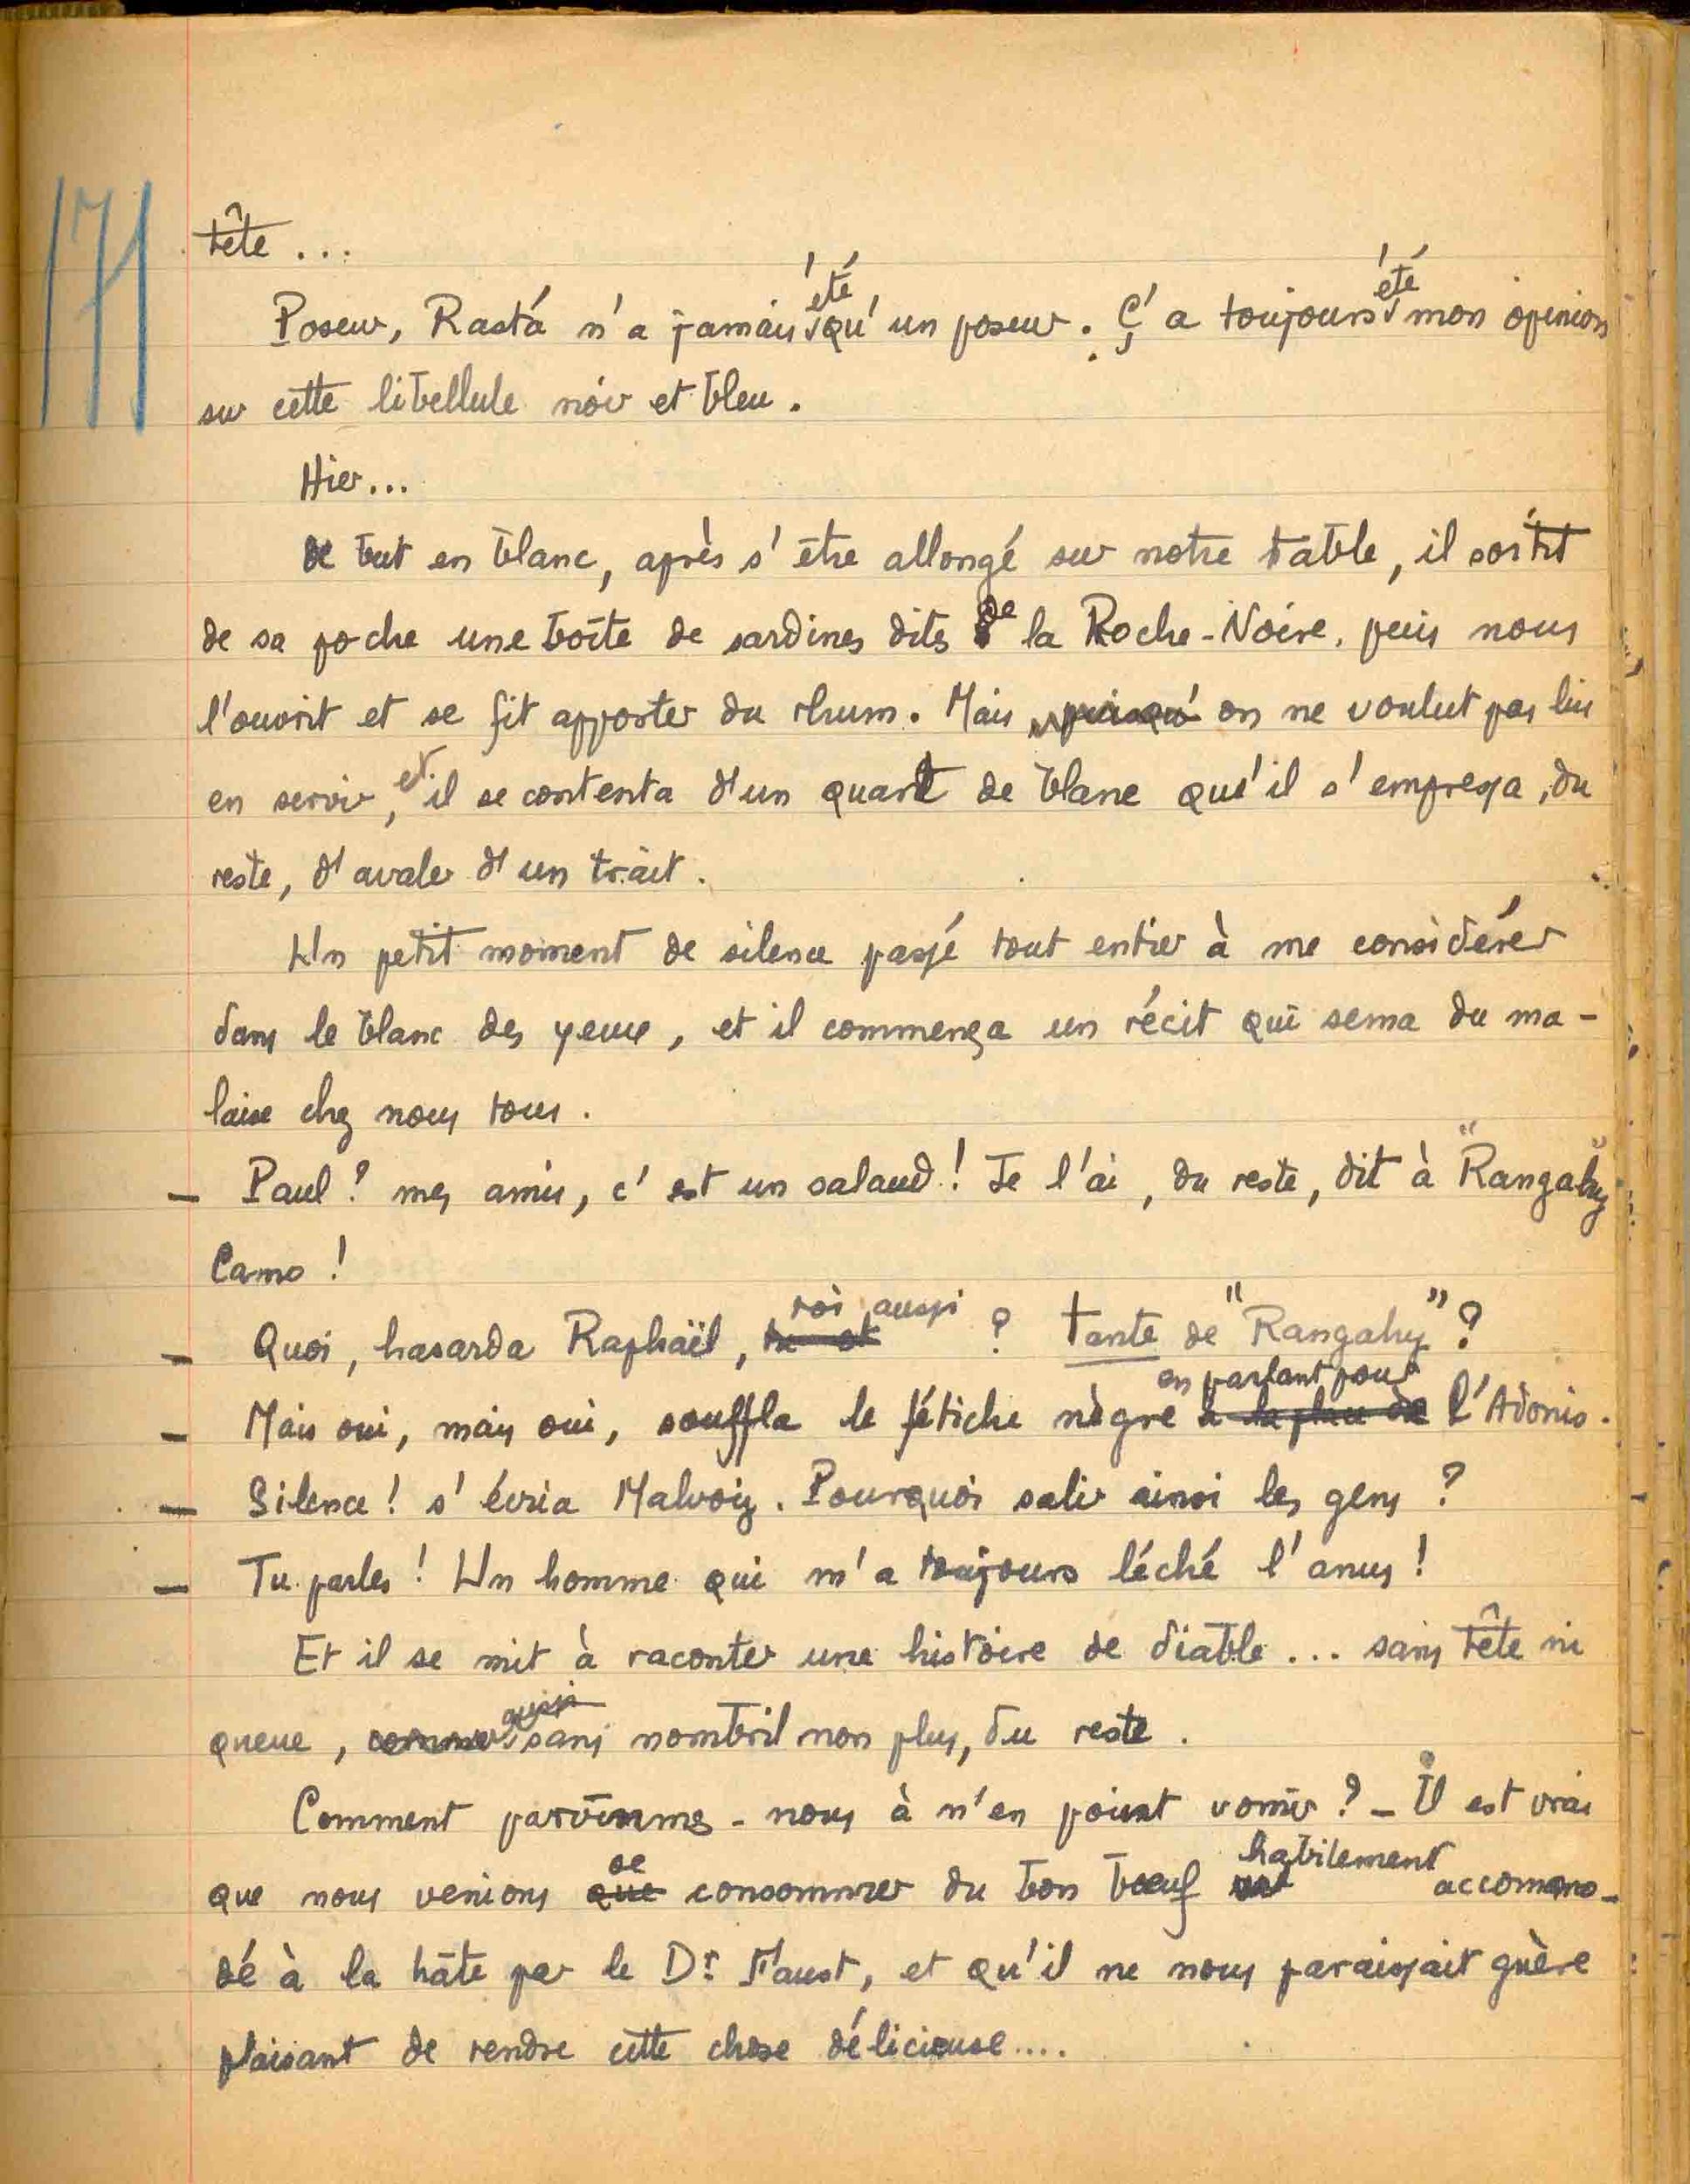 171
tête ...
Poseur, Rasta n'a jamais été qu'un poseur. Ç'a toujours été mon opinion
sur cette libellule noir et bleu.
Hier...
De but en blanc, après s'être allongé sur notre table, il sortit
de sa poche une boîte de sardines dites de la Roche-Noire, puis nous
l'ouvrit et se fit apporter du rhum. Mais puisqu' on ne voulut pas lui
en servir, et il se contenta d'un quart de blanc qu'il s'empressa, du
reste, d'avaler d'un trait.
Un petit moment de silence passé tout entier à me considérer
dans le blanc des yeux, et il commença un récit qui sema du ma-
laise chez nous tous.
– Paul? mes amis, c'est un salaud! Je l'ai, du reste, dit à "Rangahy"
Camo!
– Quoi, hasarda Raphaël, tu es toi aussi ? tante de "Rangahy"?
– Mais oui, mais oui, souffla le fétiche nègre à la place de en parlant pour l'Adonis.
– Silence! s'écria Malvoiz. Pourquoi salir ainsi les gens?
– Tu parles! Un homme qui m'a toujours léché l'anus!
Et il se mit à raconter une histoire de diable ... sans tête ni
queue, comme aussi sans nombril non plus, du reste.
Comment parvînmes-nous à n'en point vomir? – Il est vrai
que nous venions que de consommer du bon bœuf habilement accommo-
dé à la hâte par le Dr Faust, et qu'il ne nous paraissait guère
plaisant de rendre cette chose délicieuse....